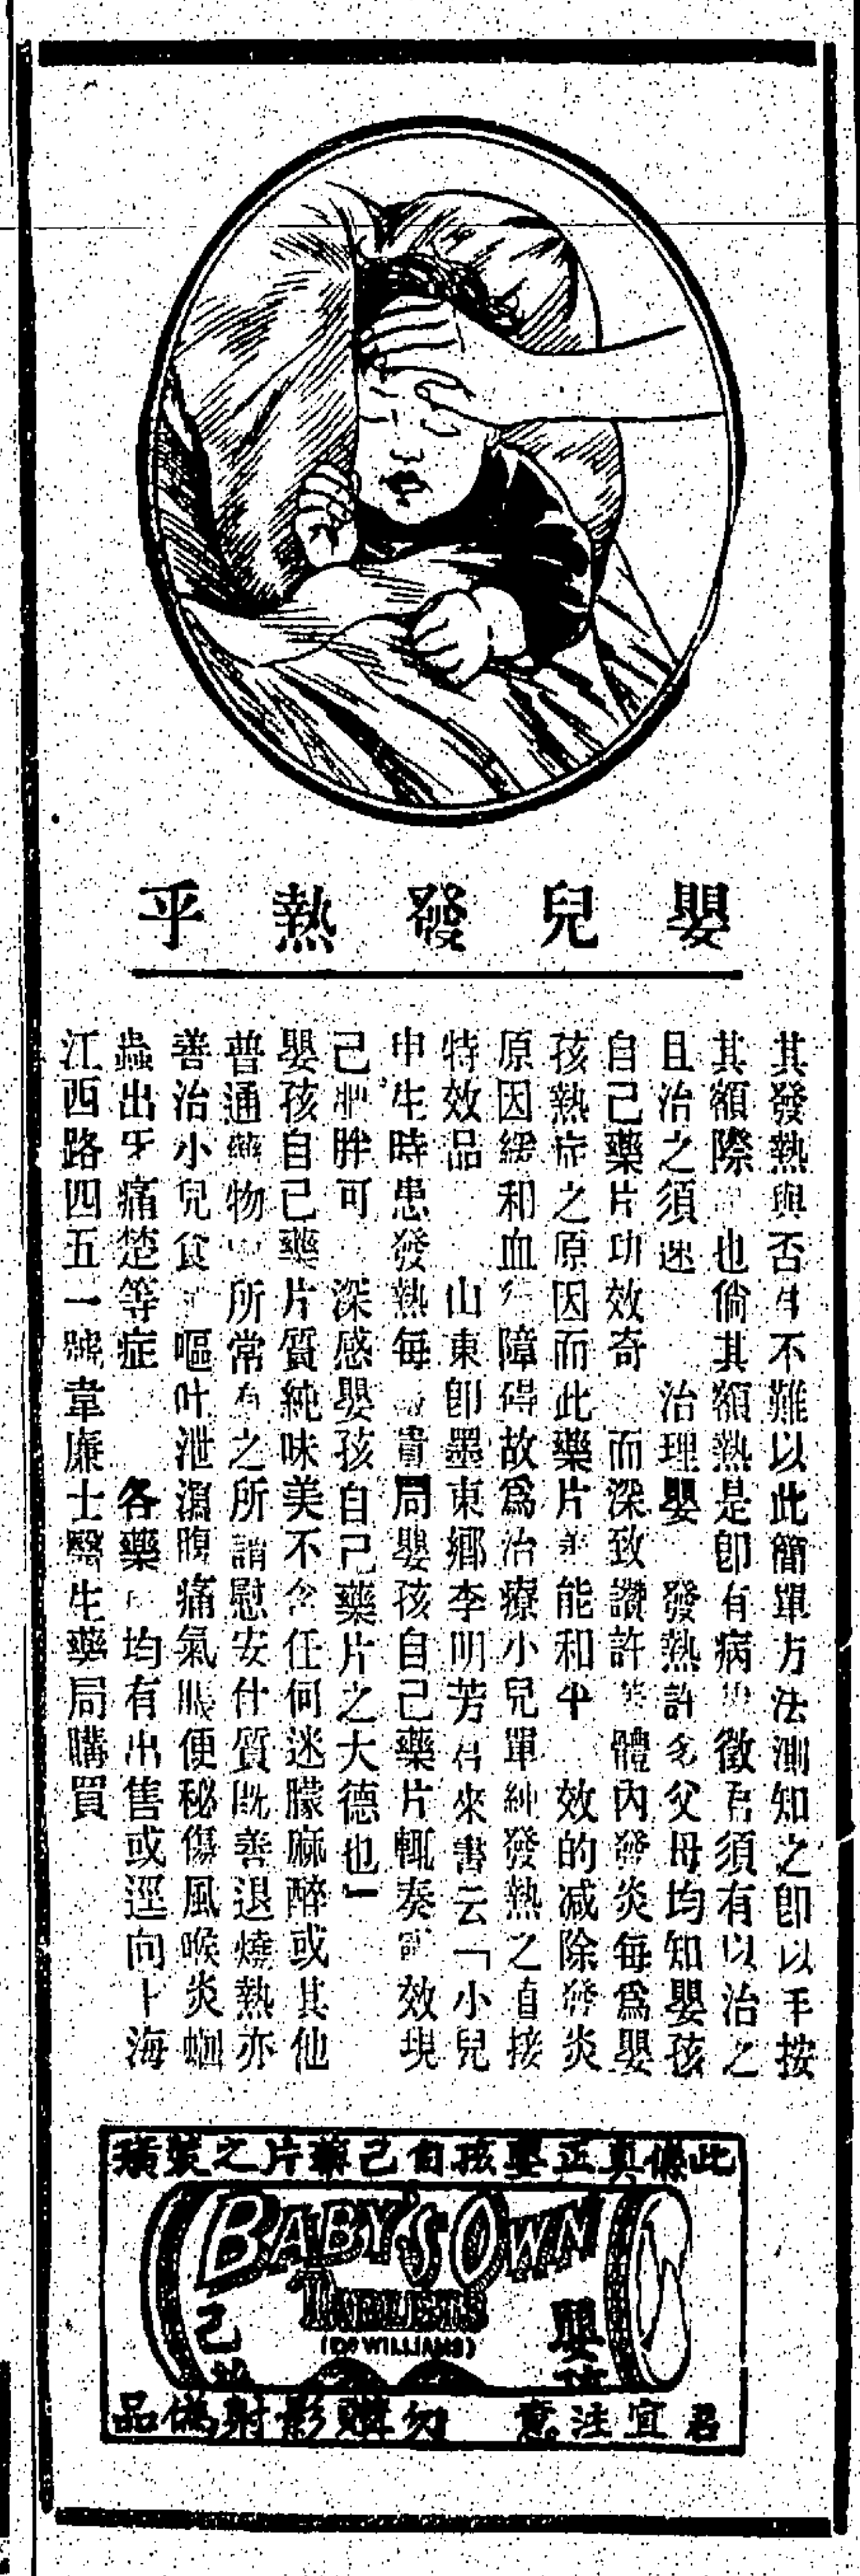 嬰兒發熱乎
其發熱與否不難以此簡單方法測知之卽以手按
其額際也倘其額熱是卽有病徵君須有以治之
且治之須迷治理嬰發熱許多父母均知嬰孩
自己藥片功效奇而深致讚許體內發炎每爲嬰
孩熱症之原因而此藥片能和平效的减除發炎
原因緩和血障碍故爲治療小兒單純發熱之直接
特效品山東卽墨東鄉李明芳君來書云「小兒
申生時患發熱每貴局嬰孩自己藥片輒奏效現
己肥胖可深感嬰孩自己藥片之大德也」
嬰孩自己藥片質純味美不含任何迷朦麻醉或其他
普通藥物所常有之所謂慰安什質既善退燒熱亦
善治小兒食嘔吐泄瀉腹痛氣脹便秘傷風喉炎蛔
蟲出牙痛楚等症各藥均有出售或逕向上海
江西路四五一號韋廉士醫生藥局購買
此係真正嬰孩自己藥片之裝璜
BABY'S OWN
TABLETS
(DR WILLIAMS)
嬰孩
自己
君宜注意勿購影射偽品